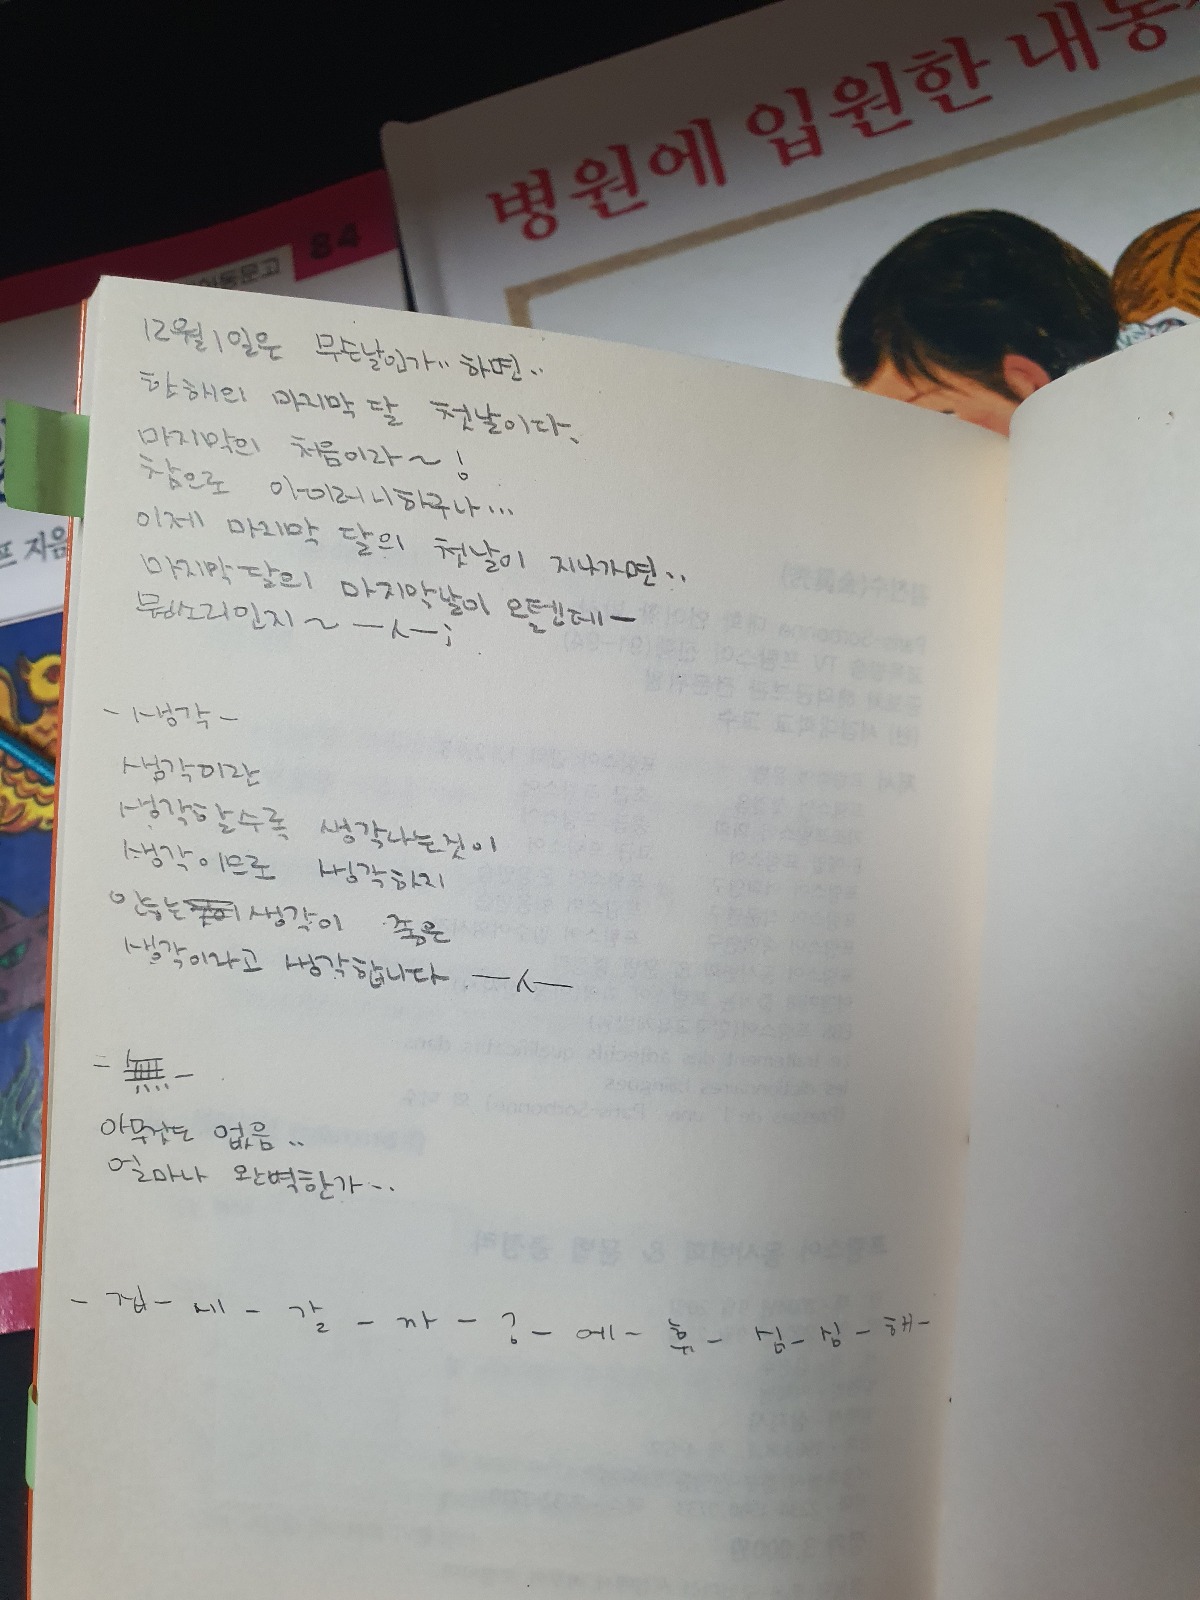 병원에 입원한 내동
84
아동문고
프 지음
12월 1일은 무슨날인가.. 하면..
한해의 마지막 달 첫날이다.
마지막의 처음이라~!
참으로 아이러니하구나...
이제 마지막 달의 첫날이 지나가면..
마지막달의 마지막날이 올텐데-
뭔소리인지~ ㅡㅅㅡ;
- 생각 -
생각이란
생각할수록 생각나는것이
생각이므로 생각하지
않는 생각이 좋은
생각이라고 생각합니다 ㅡㅅㅡ
- 無 -
아무것도 없음..
얼마나 완벽한가...
- 집 - 에 - 갈 - 까 - ? - 에 - 휴 - 심 - 심 - 해 -